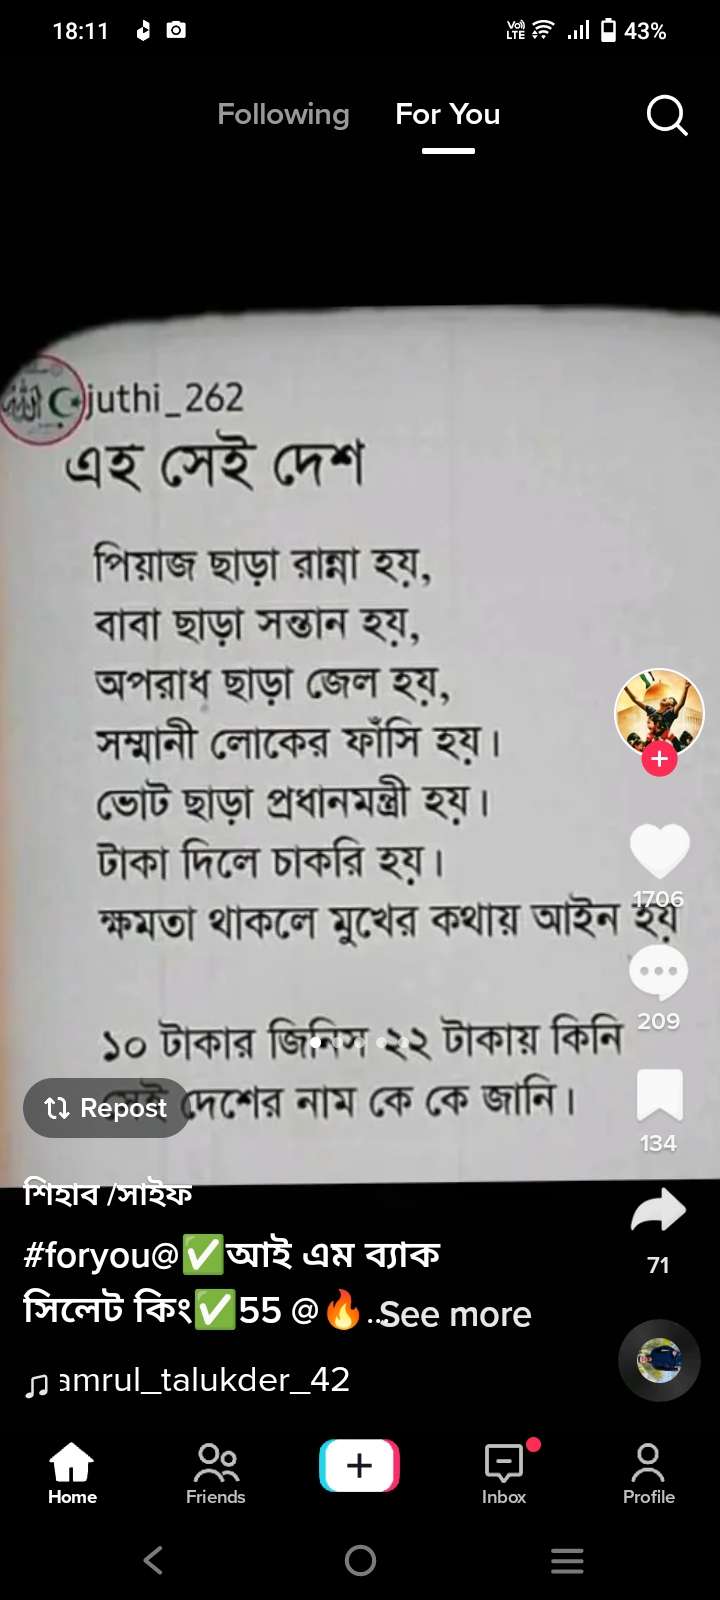 18:11
Vo) LTE
43%
Following
For You
juthi_262
এহ সেই দেশ
পিয়াজ ছাড়া রান্না হয়,
বাবা ছাড়া সন্তান হয়,
অপরাধ ছাড়া জেল হয়,
সম্মানী লোকের ফাঁসি হয়।
ভোট ছাড়া প্রধানমন্ত্রী হয়।
টাকা দিলে চাকরি হয়।
ক্ষমতা থাকলে মুখের কথায় আইন হয়
১০ টাকার জিনিস ২২ টাকায় কিনি
সেই দেশের নাম কে কে জানি।
1706
209
134
71
Repost
শিহাব /সাইফ
#foryou@✅আই এম ব্যাক
সিলেট কিং✅55 @🔥...See more
amrul_talukder_42
Home
Friends
Inbox
Profile